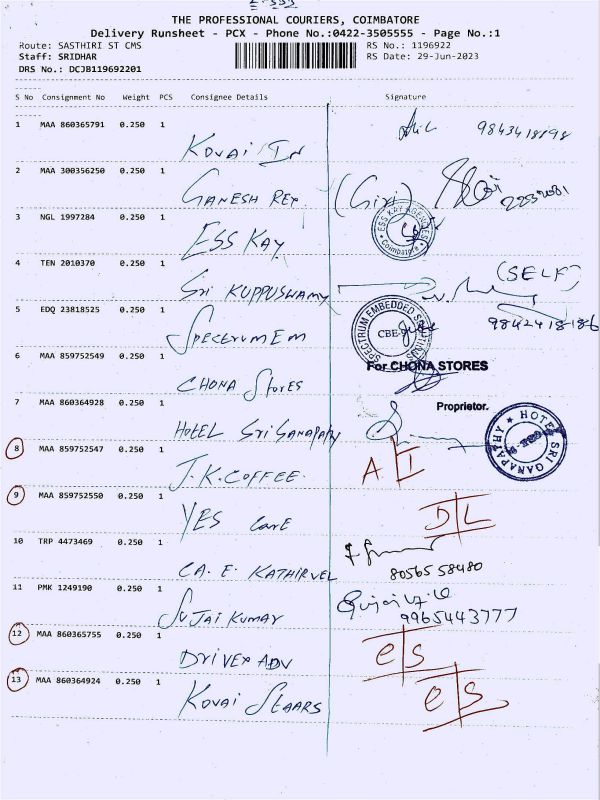 THE PROFESSIONAL COURIERS, COIMBATORE
Delivery Runsheet - PCX - Phone No.:0422-3505555 - Page No.:1
Route: SASTHIRI ST CMS
RS No.: 1196922
Staff: SRIDHAR
RS Date: 29-Jun-2023
DRS No.: DCJB119692201
S No Consignment No Weight PCS Consignee Details Signature
1 MAA 860365791 0.250 1
KOVAI IN
2 MAA 300356250 0.250 1
GANESH REY (Giri)
3 NGL 1997284 0.250 1
ESS KAY ESS KAY AGENCIES Coimbatore
4 TEN 2010370 0.250 1
Sri KUPPUSWAMY (SELF)
5 EDQ 23818525 0.250 1 98424 18186
SPECTRUM EM SPECTRUM EMBEDDED SOLUTIONS CBE
6 MAA 859752549 0.250 1 For CHONA STORES
CHONA Stores
7 MAA 860364928 0.250 1 Proprietor.
HOTEL Sri GANAPATHY HOTEL SRI GANAPATHY
8 MAA 859752547 0.250 1
J.K. COFFEE A I
9 MAA 859752550 0.250 1
YES Care D L
10 TRP 4473469 0.250 1
CA. E. KATHIRVEL 80565 58480
11 PMK 1249190 0.250 1
SUJAI KUMAR 9965443777
12 MAA 860365755 0.250 1
DRIVER ADV e s
13 MAA 860364924 0.250 1
KOVAI STAARS e s